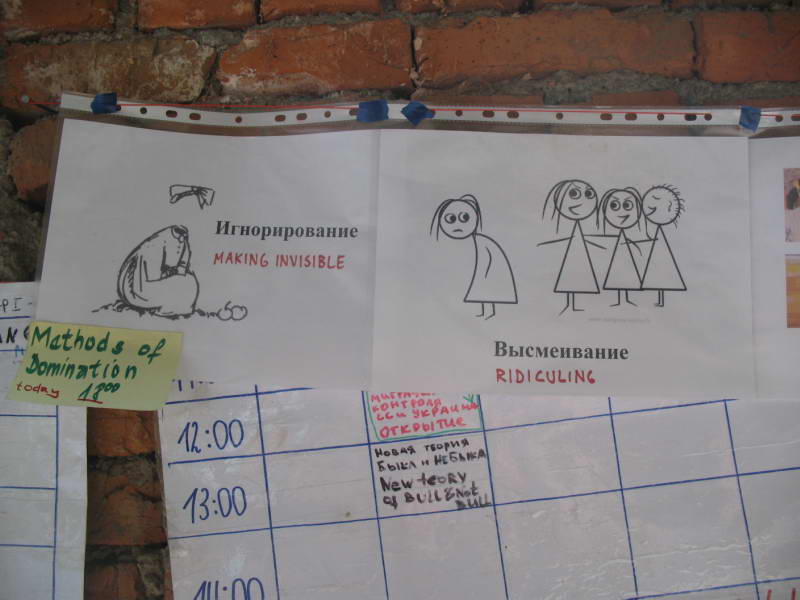 Игнорирование
MAKING INVISIBLE
Высмеивание
RIDICULING
Methods of
Domination
today 18⁰⁰
КОНТРОЛЯ
ЕС И УКРАИНА
ОТКРЫТИЕ
12:00
НОВАЯ ТЕОРИЯ
БЫКА И НЕБЫКА
New teory
of BULL & Not
BULL
13:00
14:00